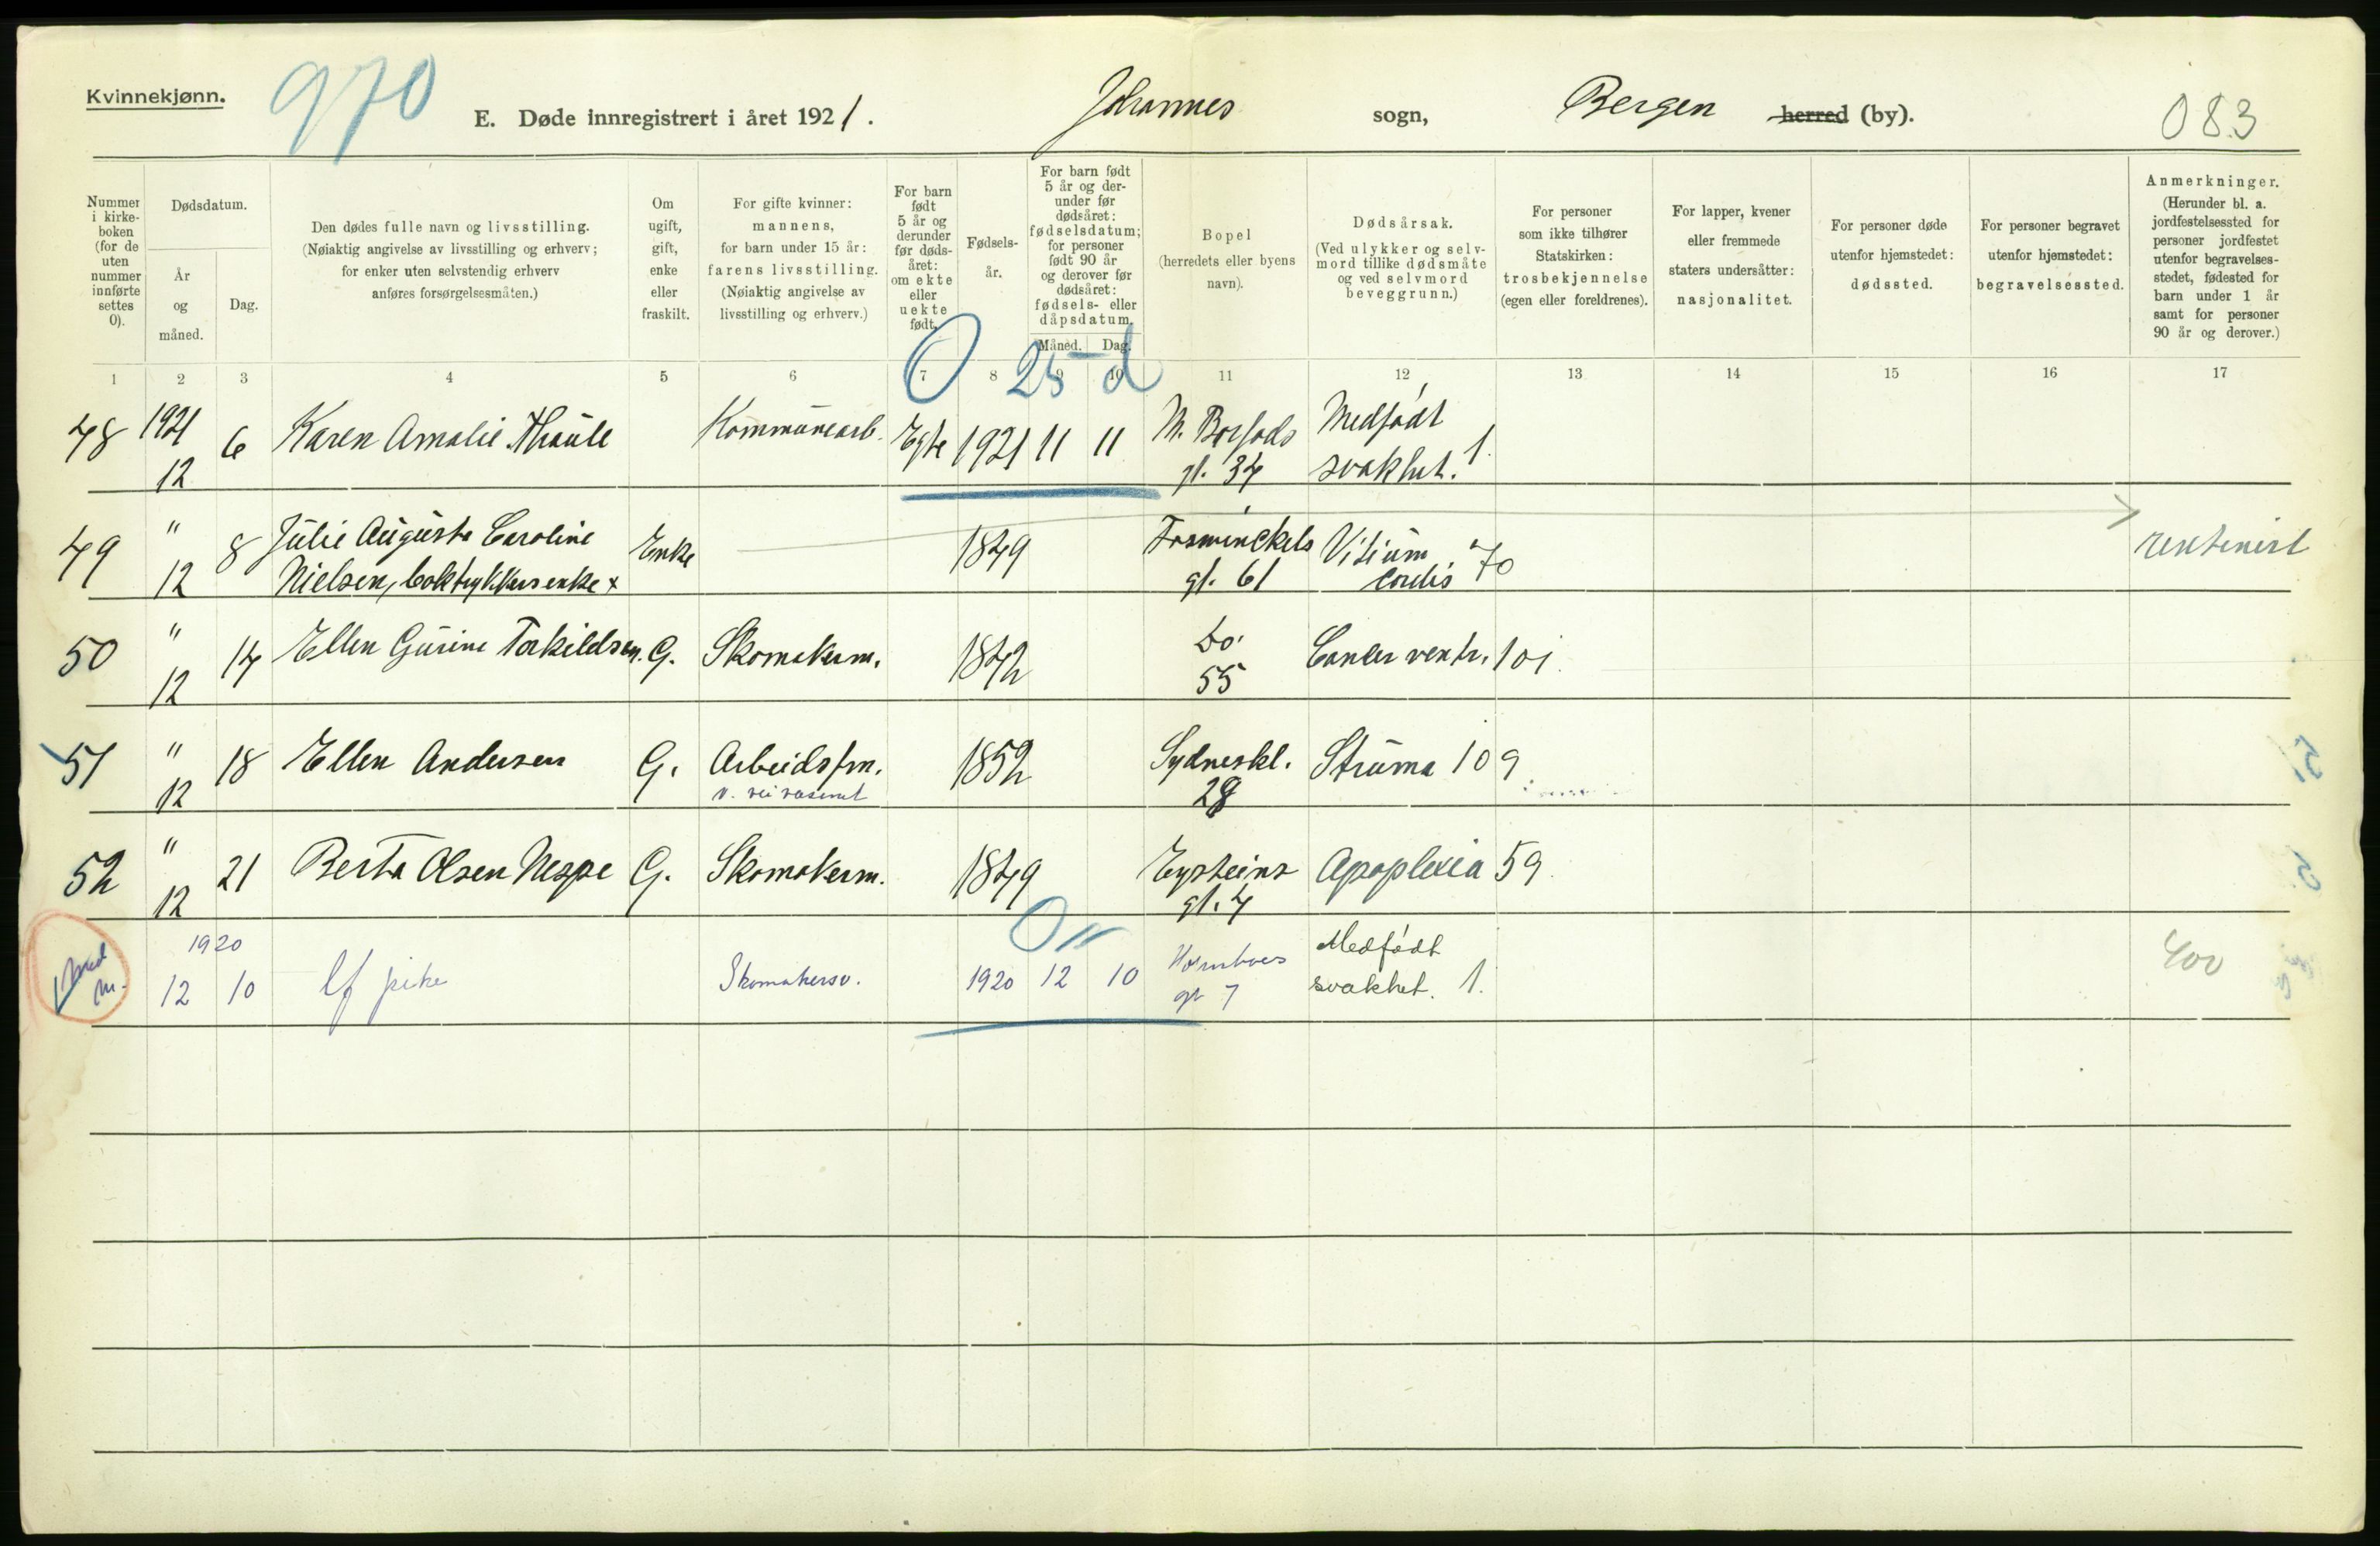 Kvinnekjønn.
970
E. Døde innregistrert i året 1921.
Johannes sogn,
Bergen herred (by).
083
Nummer i kirkeboken (for de uten nummer innførte settes 0).
Dødsdatum.
År og måned.
Dag.
Den dødes fulle navn og livsstilling.
(Nøiaktig angivelse av livsstilling og erhverv;
for enker uten selvstendig erhverv
anføres forsørgelsesmåten.)
Om ugift, gift, enke eller fraskilt.
For gifte kvinner:
mannens,
for barn under 15 år:
farens livsstilling.
(Nøiaktig angivelse av
livsstilling og erhverv.)
For barn født 5 år og derunder før dødsåret: om ekte eller uekte født.
Fødselsår.
For barn født 5 år og derunder før dødsåret: fødselsdatum; for personer født 90 år og derover før dødsåret: fødsels- eller dåpsdatum.
Måned. Dag.
Bopel
(herredets eller byens
navn).
Dødsårsak.
(Ved ulykker og selvmord tillike dødsmåte og ved selvmord beveggrunn.)
For personer
som ikke tilhører
Statskirken:
trosbekjennelse
(egen eller foreldrenes).
For lapper, kvener
eller fremmede
staters undersåtter:
nasjonalitet.
For personer døde
utenfor hjemstedet:
dødssted.
For personer begravet
utenfor hjemstedet:
begravelsessted.
Anmerkninger.
(Herunder bl. a.
jordfestelsessted for
personer jordfestet
utenfor begravelses-
stedet, fødested for
barn under 1 år
samt for personer
90 år og derover.)
1 2 3 4 5 6 7 8 9 10 11 12 13 14 15 16 17
0 25 d
48 1921 12 6 Karen Amalie Kommunearb. Egte 1921 11 11 gt. 34 Medfødt svakhet. 1.
49 " 12 8 Julie Augusta Caroline Nielsen, boktrykkers enke x Enke 1849 Fosswinckels gt. 61 Vitium cordis 70 rentenist
50 " 12 14 Ellen Gurine Torkildsen. G. Skomakerm. 1842 Do. 55 Cancer ventr. 101.
51 " 12 18 Ellen Andersen G. Arbeidsfm. v. veivesenet 1852 Sydneskl. 28 Struma 109
52 " 12 21 Berta Olsen Neppe G. Skomakerm. 1849 Eysteins gt. 4 Apoplexia 59.
0 11
1920 12 10 lf pike Skomakersv. 1920 12 10 gt 7 Medfødt svakhet. 1. 400